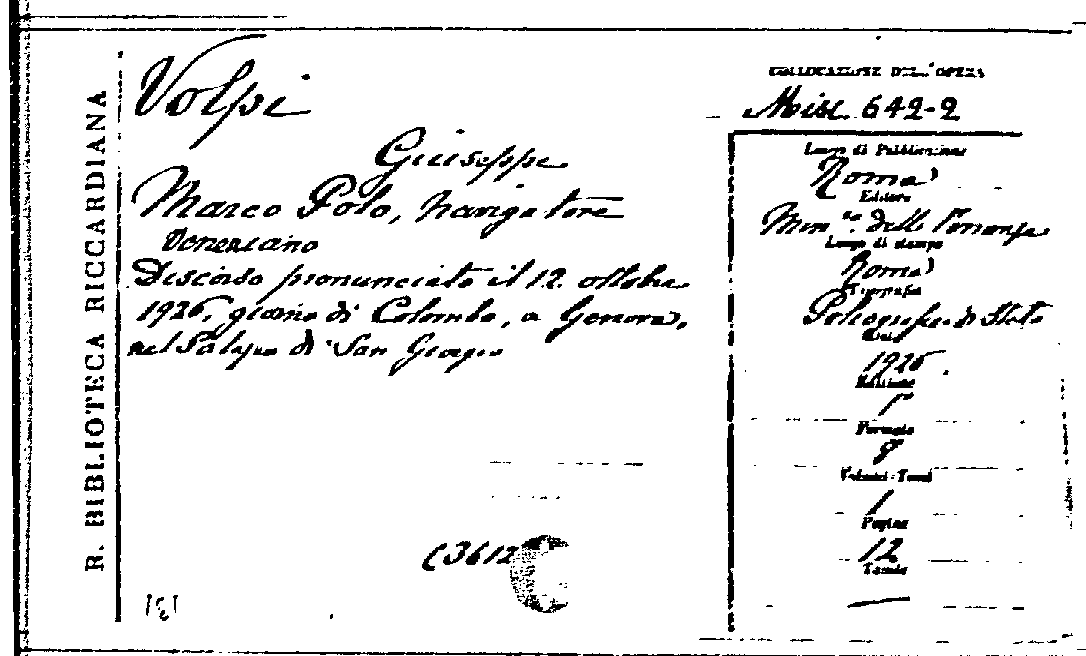 R. BIBLIOTECA RICCARDIANA
Volpi
Giuseppe
Marco Polo, navigatore
Veneziano
Discorso pronunciato il 12 ottobre
1926, giorno di Colombo, a Genova,
nel Palazzo di San Giorgio
(3612
COLLOCAZIONE DELL'OPERA
Misc. 642-2
Luogo di Pubblicazione
Roma
Editore
Min. delle Finanze
Luogo di stampa
Roma
Tipografia
Poligrafico di Stato
Data
1926
Edizione
1
Formato
8
Volumi-Tomi
1
Pagine
12
Tavole
—